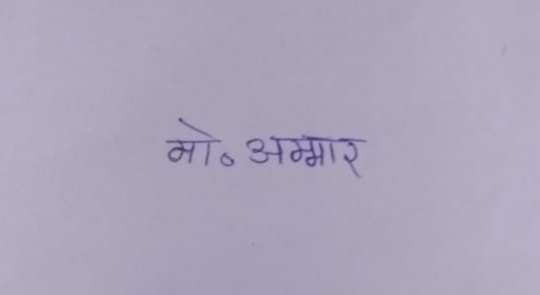 मो० अम्मार